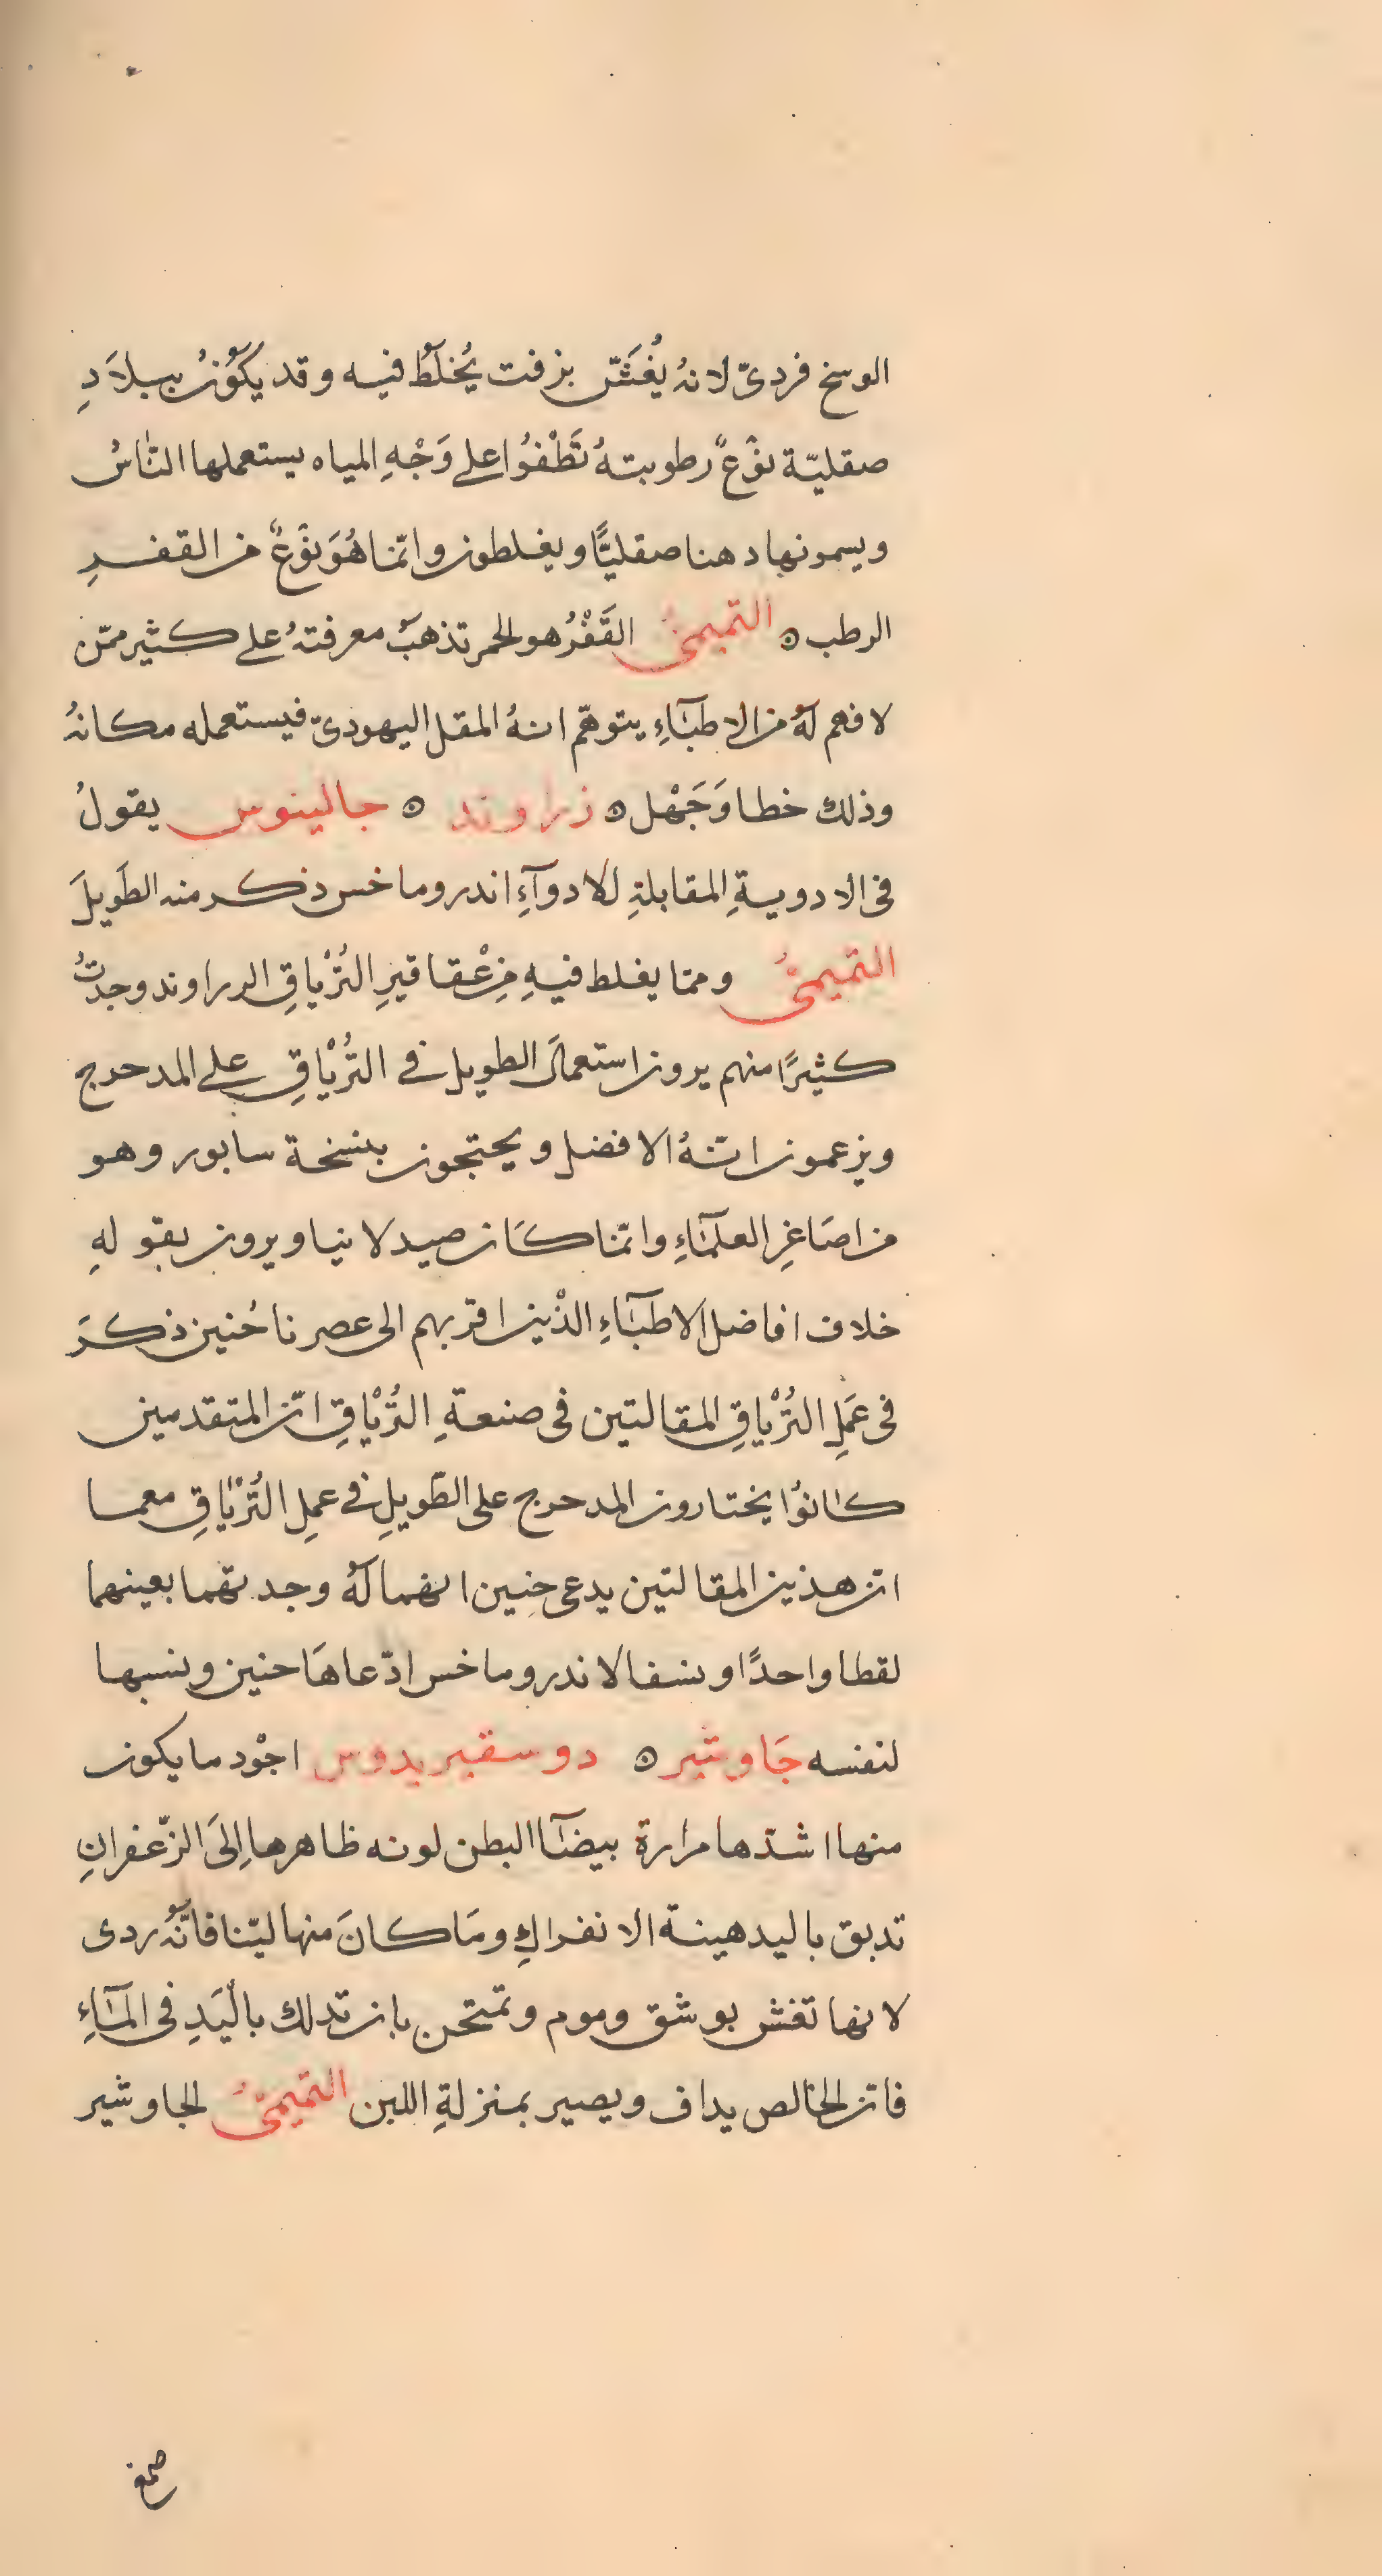 الوسخ فردىّ لانهُ يُغَشّ بزفت يُخلَطُ فيه وقد يكَوُنُ ببلاَدِ
صقليّة نوْعٌ رطوبتهُ تَطْفوُا على وَجْهِ المياه يستعملها النّاسُ
ويسمونها دهنا صقليًّا ويغلطون وانّما هُوَ نوْعٌ من القفرِ
الرطب ه التميمىُّ القَفْرُ هو الحمر تذهبُ معرفتهُ على كثير ممّن
لا فهم لهُ من الاطبّآءِ يتوهّم انهُ المقل اليهودىّ فيستعمله مكانهُ
وذلك خطا وَجَهْل ه زراوند ه جالينوس يقولُ
فى الادويةِ المقابلةِ للادوآءِ اندروماخس ذكر منه الطَويلَ
التميمىُّ وممّا يغلط فيهِ مِنْ عقاقيرِ التُرْيَاقِ الدراوند وجدتُ
كثيرًا منهم يرون استعمالَ الطويل فى التُرْيَاقِ على المدحرج
ويزعمون انّهُ الافضل ويحتجون بنسخة سابور وهو
من اصَاغِرِ العلمَآءِ وانّما كَان صيدلانيا ويرون بقولهِ
خلاف افاضل الاطبَآءِ الذْين اقربهم الى عصرنا حُنين ذكرَ
فى عَمِلِ التُرْيَاقِ المقالتين فى صنعةِ التُرْيَاقِ انّ المتقدمين
كانوُا يختارون المدحرج على الطّويلِ فى عملِ التُرْيَاقِ معما
انّ هذين المقالتين يدعى حنين انهما لهُ وجدتهما بعينهما
لقطا واحدًا ونسفا لاندروماخس ادّعاهَا حنين ونسبها
لنفسه جَاوشير ه دوسقيريدوس اجْود ما يكون
منها اشدّها مرارة بيضَآا البطن لونه ظاهرها اِلىَ الزّعفرانِ
تدبق باليد هينة الانفراكِ ومَا كانَ منها ليّنا فانّهُ ردى
لانها تغش بوشق وموم وتمتحن بان تدلك بالْيَدِ فى المَآءِ
فانّ الخالص يداف ويصير بمنزلةِ اللبن التميمىُّ الجاوشير
صمغ